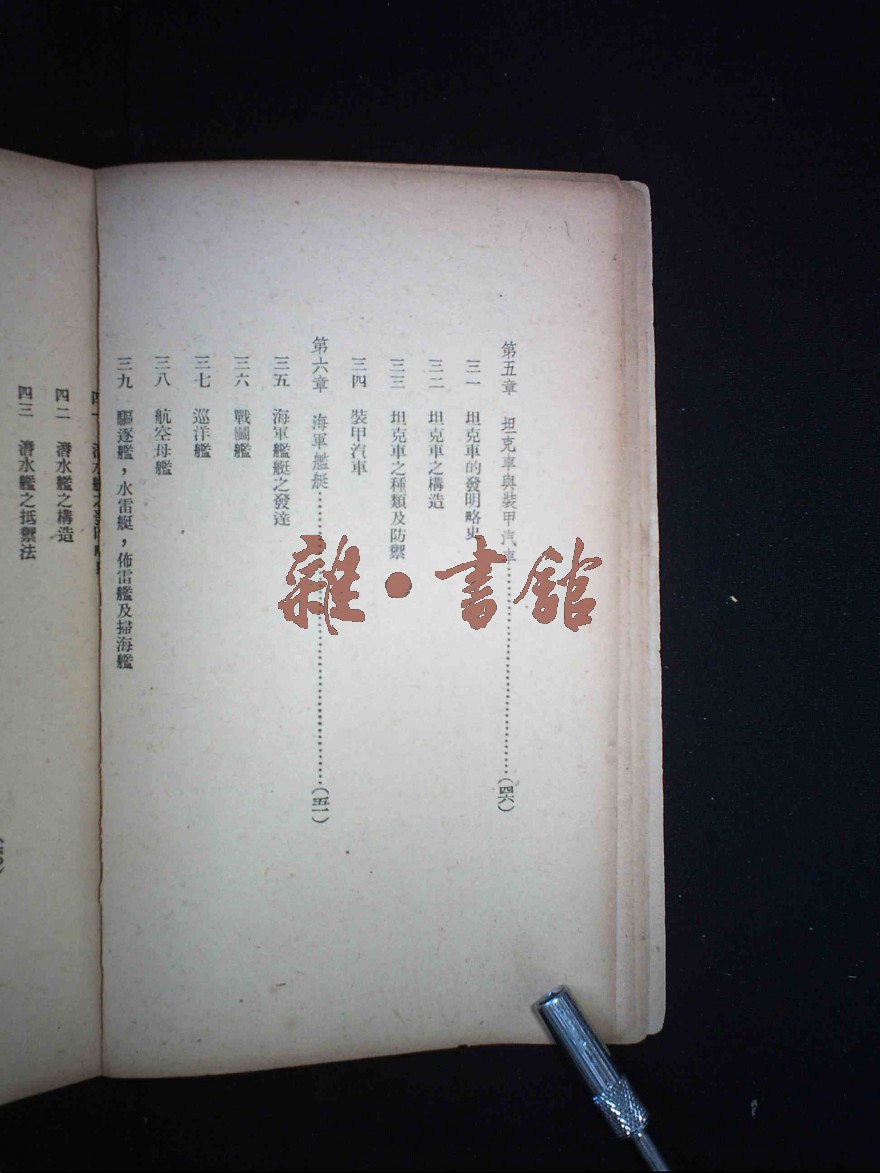 第五章 坦克車與裝甲汽車……(四六)
三一 坦克車的發明略史
三二 坦克車之構造
三三 坦克車之種類及防禦
三四 裝甲汽車
第六章 海軍艦艇……(五一)
三五 海軍艦艇之發達
三六 戰鬭艦
三七 巡洋艦
三八 航空母艦
三九 驅逐艦，水雷艇，佈雷艦及掃海艦
四一 潛水艦之發
四二 潛水艦之構造
四三 潛水艦之抵禦法
雜·書館